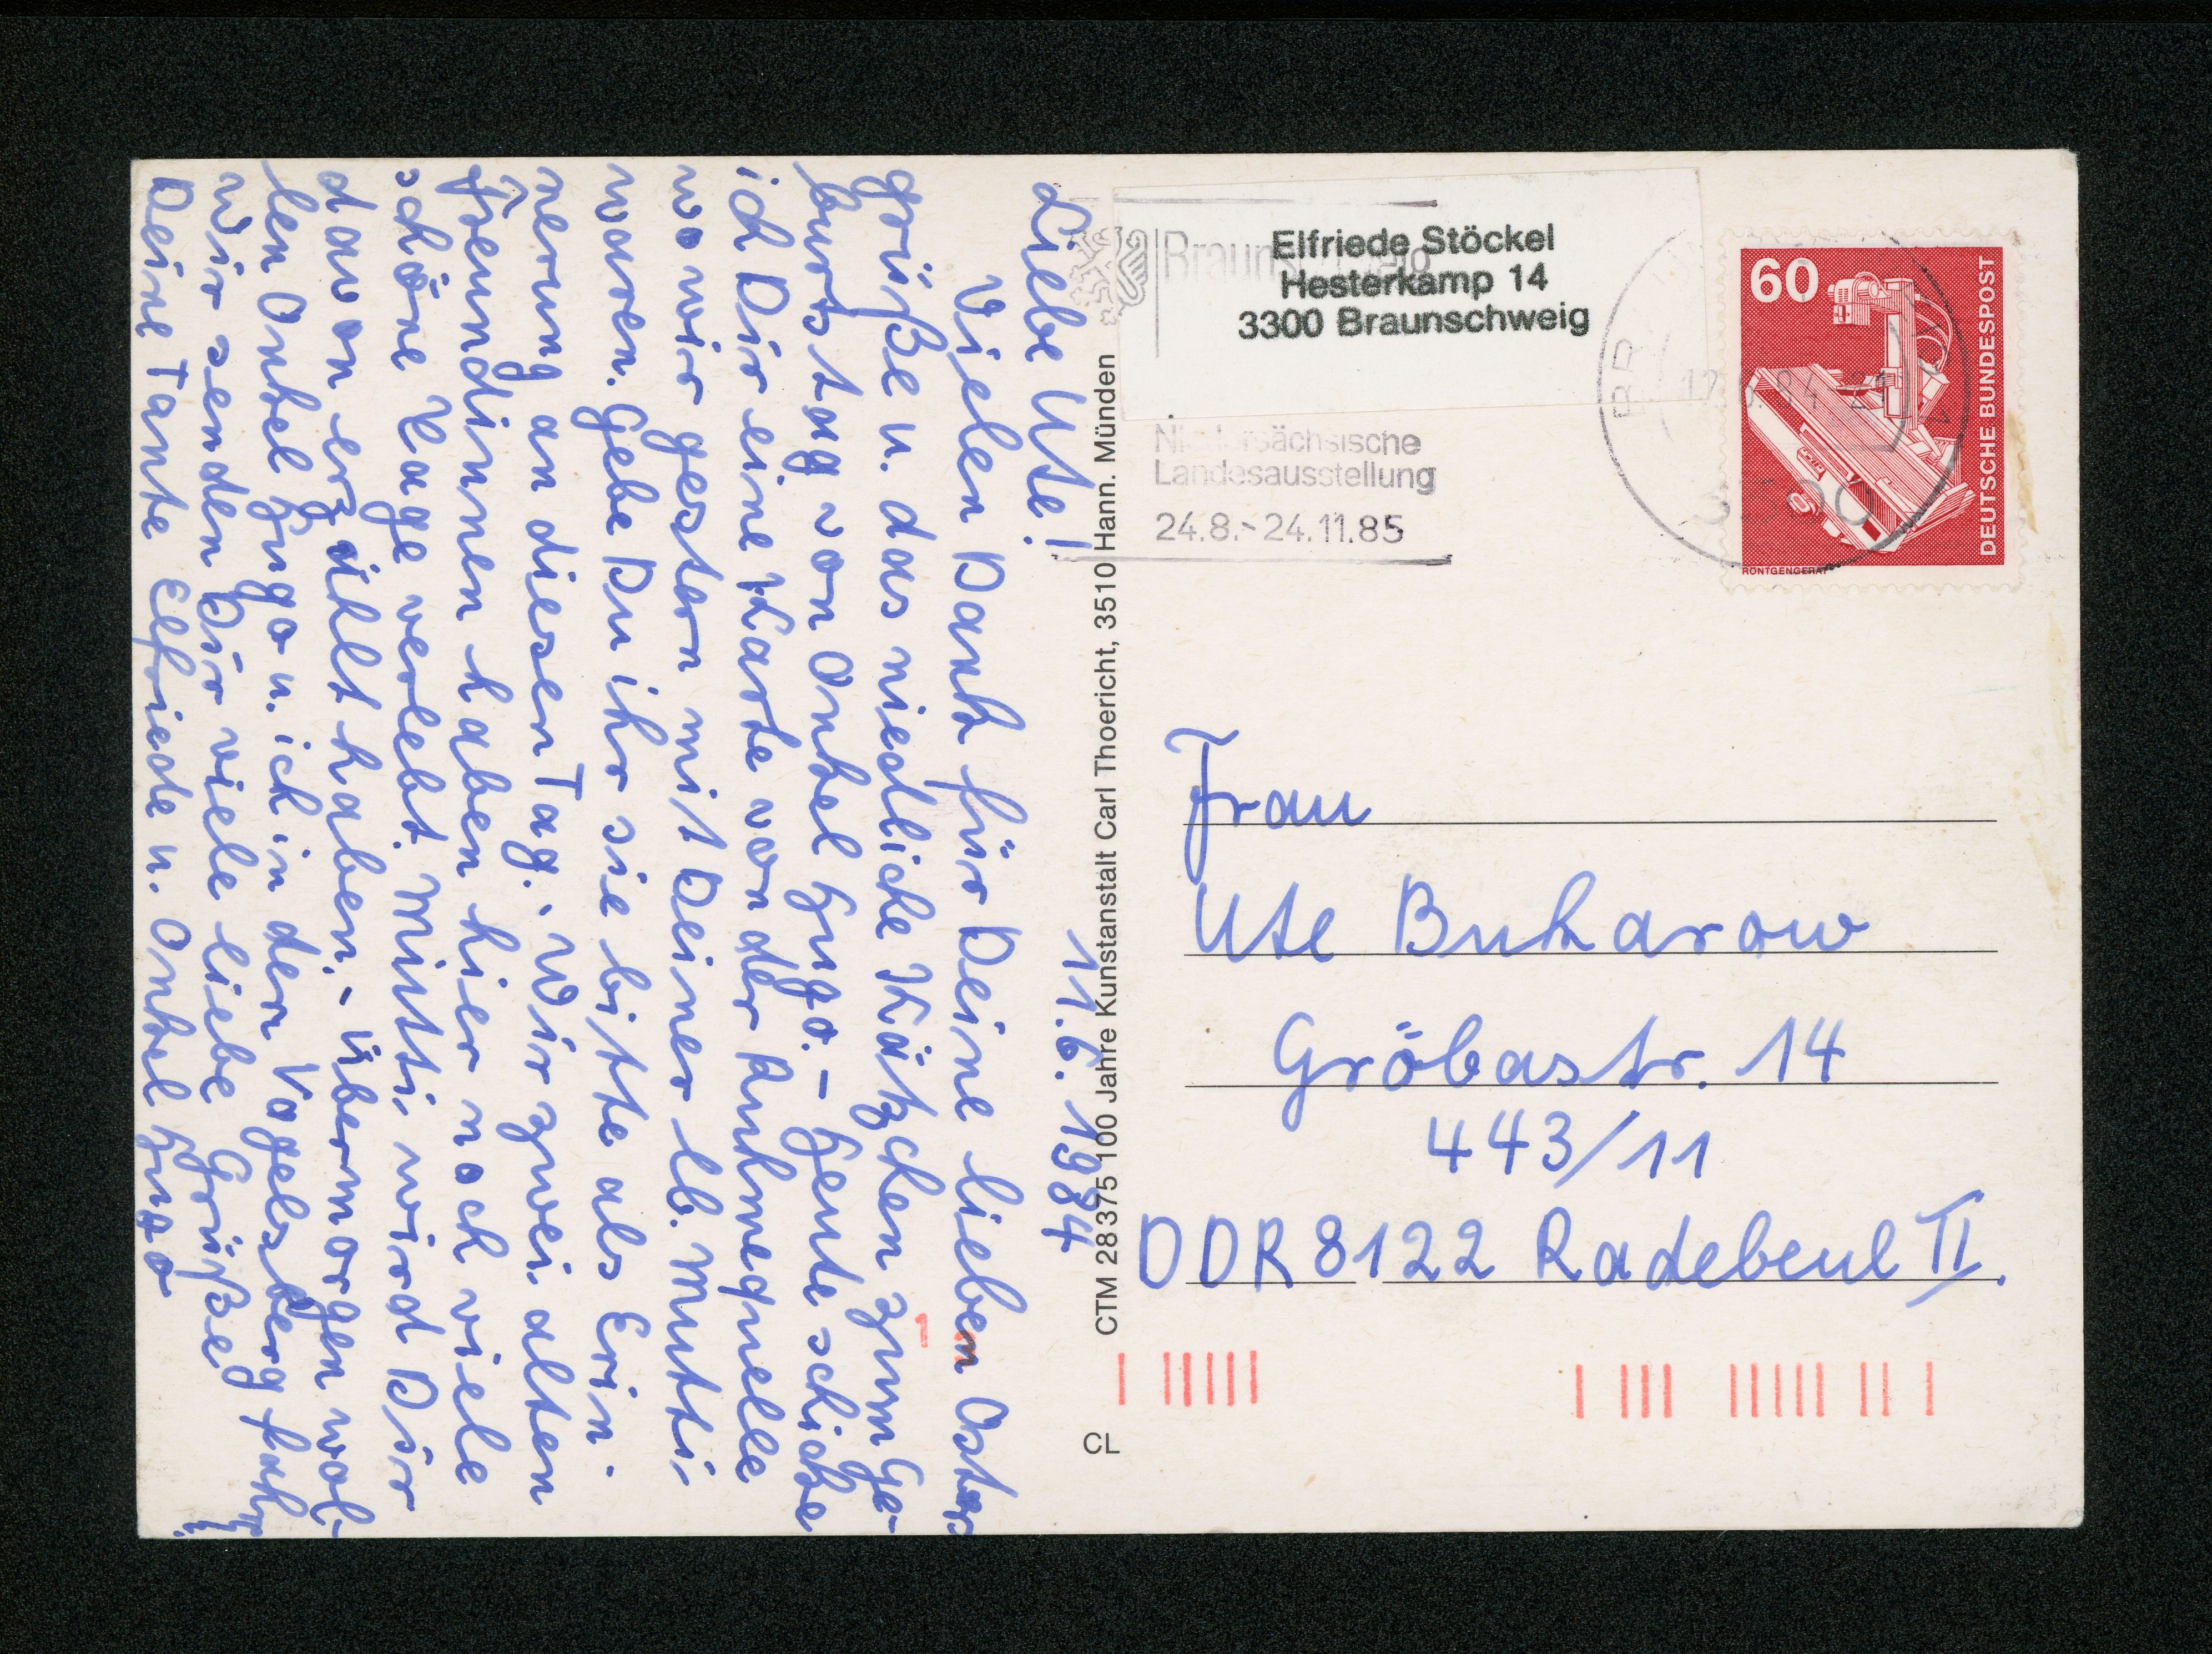 11.6.1984
Liebe Ute!
Vielen Dank für Deine lieben Oster
grüße u. das niedliche Kätzchen zum Ge-
burtstag von Onkel Hugo. - Heute schicke
ich Dir eine Karte von der Ruhmequelle
wo wir gestern mit Deiner lb. Mutti
waren. Gebe Du ihr sie bitte als Erin-
nerung an diesen Tag. Wir zwei alten
Freundinnen haben hier noch viele
schöne Tage verlebt. Mutti wird Dir
davon erzählt haben. - Übermorgen wol-
len Onkel Hugo u. ich in den Vogelsberg fahr.
Wir senden Dir viele liebe Grüße
Deine Tante Elfriede u. Onkel Hugo
CTM 28375 100 Jahre Kunstanstalt Carl Thoericht, 3510 Hann. Münden
CL
Elfriede Stöckel
Hesterkamp 14
3300 Braunschweig
Niedersächsische
Landesausstellung
24.8.-24.11.85
60
DEUTSCHE BUNDESPOST
RÖNTGENGERÄT
Frau
Ute Bukarow
Gröbastr. 14
443/11
DDR 8122 Radebeul II.